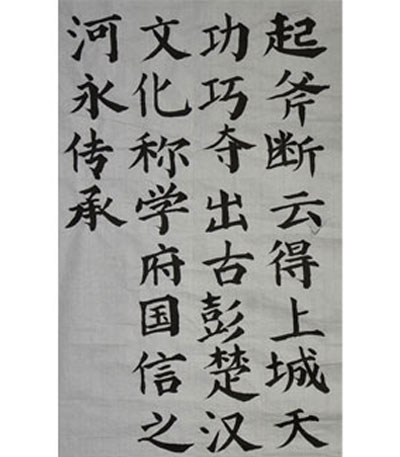 起斧断云得上城天
功巧夺出古彭楚汉
文化称学府国信之
河永传承